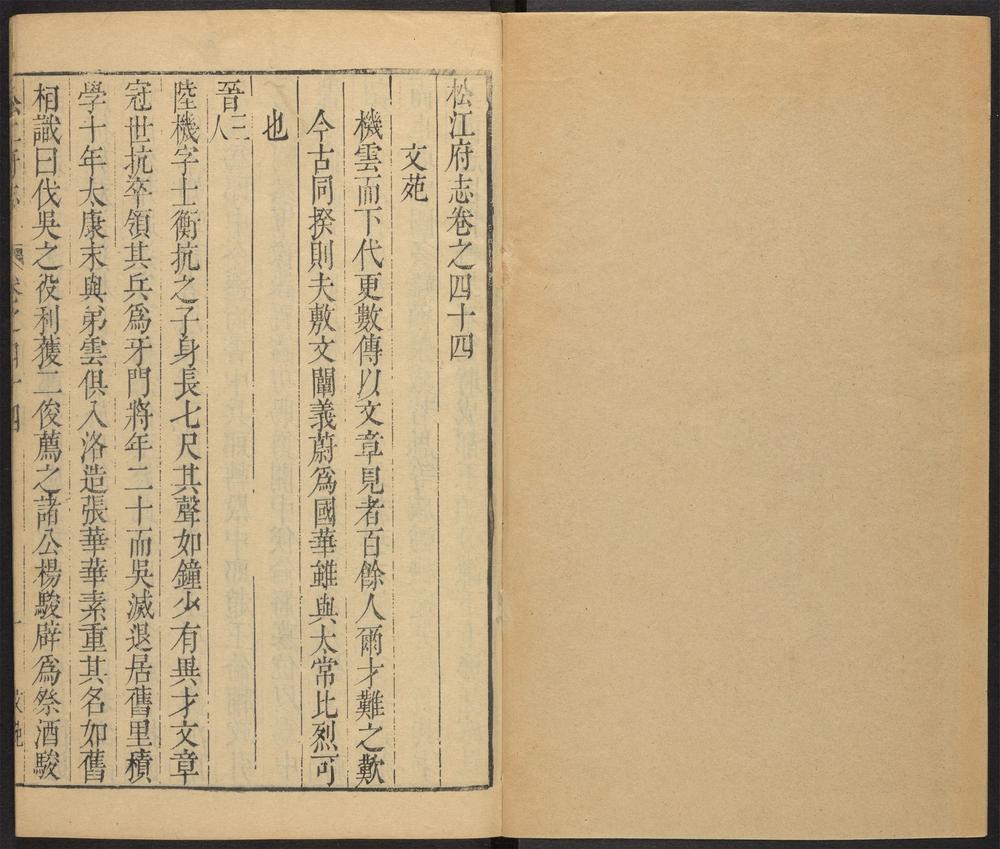 松江府志卷之四十四
文苑
機雲而下代更數傳以文章見者百餘人爾才難之歎
今古同揆則夫敷文闡義蔚爲國華雖與太常比烈可
也
晉三人
陸機字士衡抗之子身長七尺其聲如鐘少有異才文章
冠世抗卒領其兵爲牙門將年二十而吳滅退居舊里積
學十年太康末與弟雲俱入洛造張華華素重其名如舊
相識曰伐吳之役利獲二俊薦之諸公楊駿辟爲祭酒駿
松江府志
卷之四十四
一
文苑